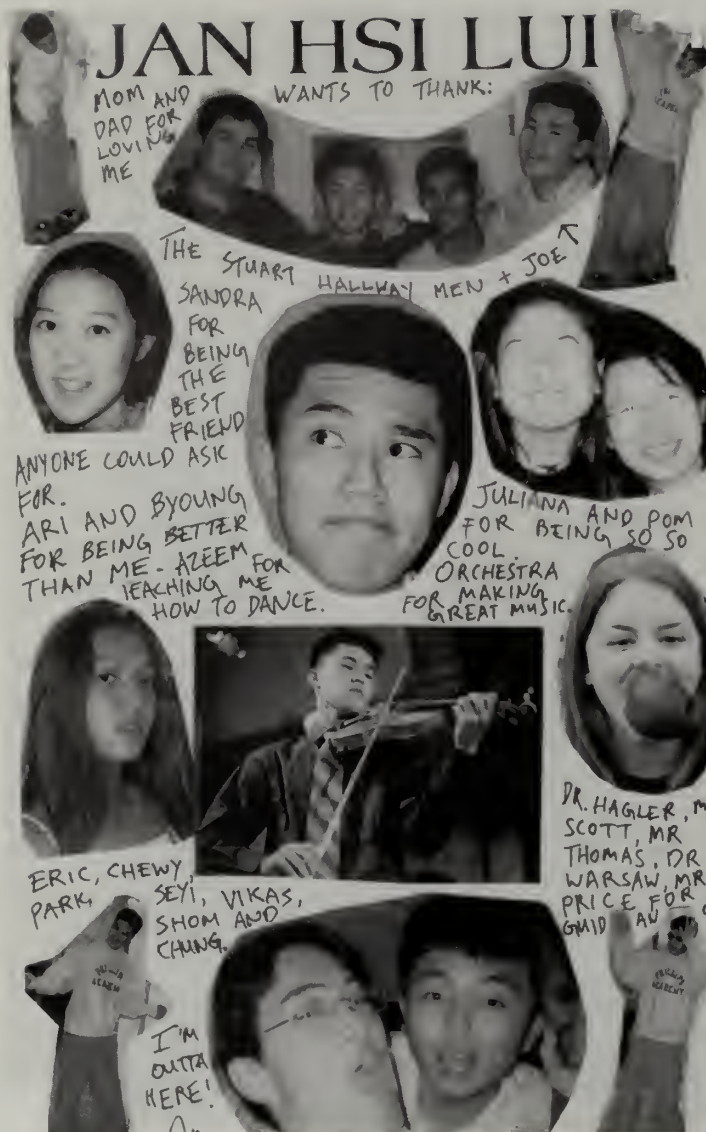 JAN HSI LUI
WANTS TO THANK:
MOM AND
DAD FOR
LOVING
ME
THE STUART HALLWAY MEN + JOE
SANDRA
FOR
BEING
THE
BEST
FRIEND
ANYONE COULD ASK
FOR.
ARI AND BYOUNG
FOR BEING BETTER
THAN ME. AZEEM FOR
TEACHING ME
HOW TO DANCE.
JULIANA AND POM
FOR BEING SO SO
COOL.
ORCHESTRA
FOR MAKING
GREAT MUSIC.
DR. HAGLER,
SCOTT, MR
THOMAS, DR
WARSAW, MR
PRICE FOR
ERIC, CHEWY,
PARK,
SEYI, VIKAS,
SHOM AND
CHUNG.
PHILLIPS
ACADEMY
I'M
OUTTA
HERE!